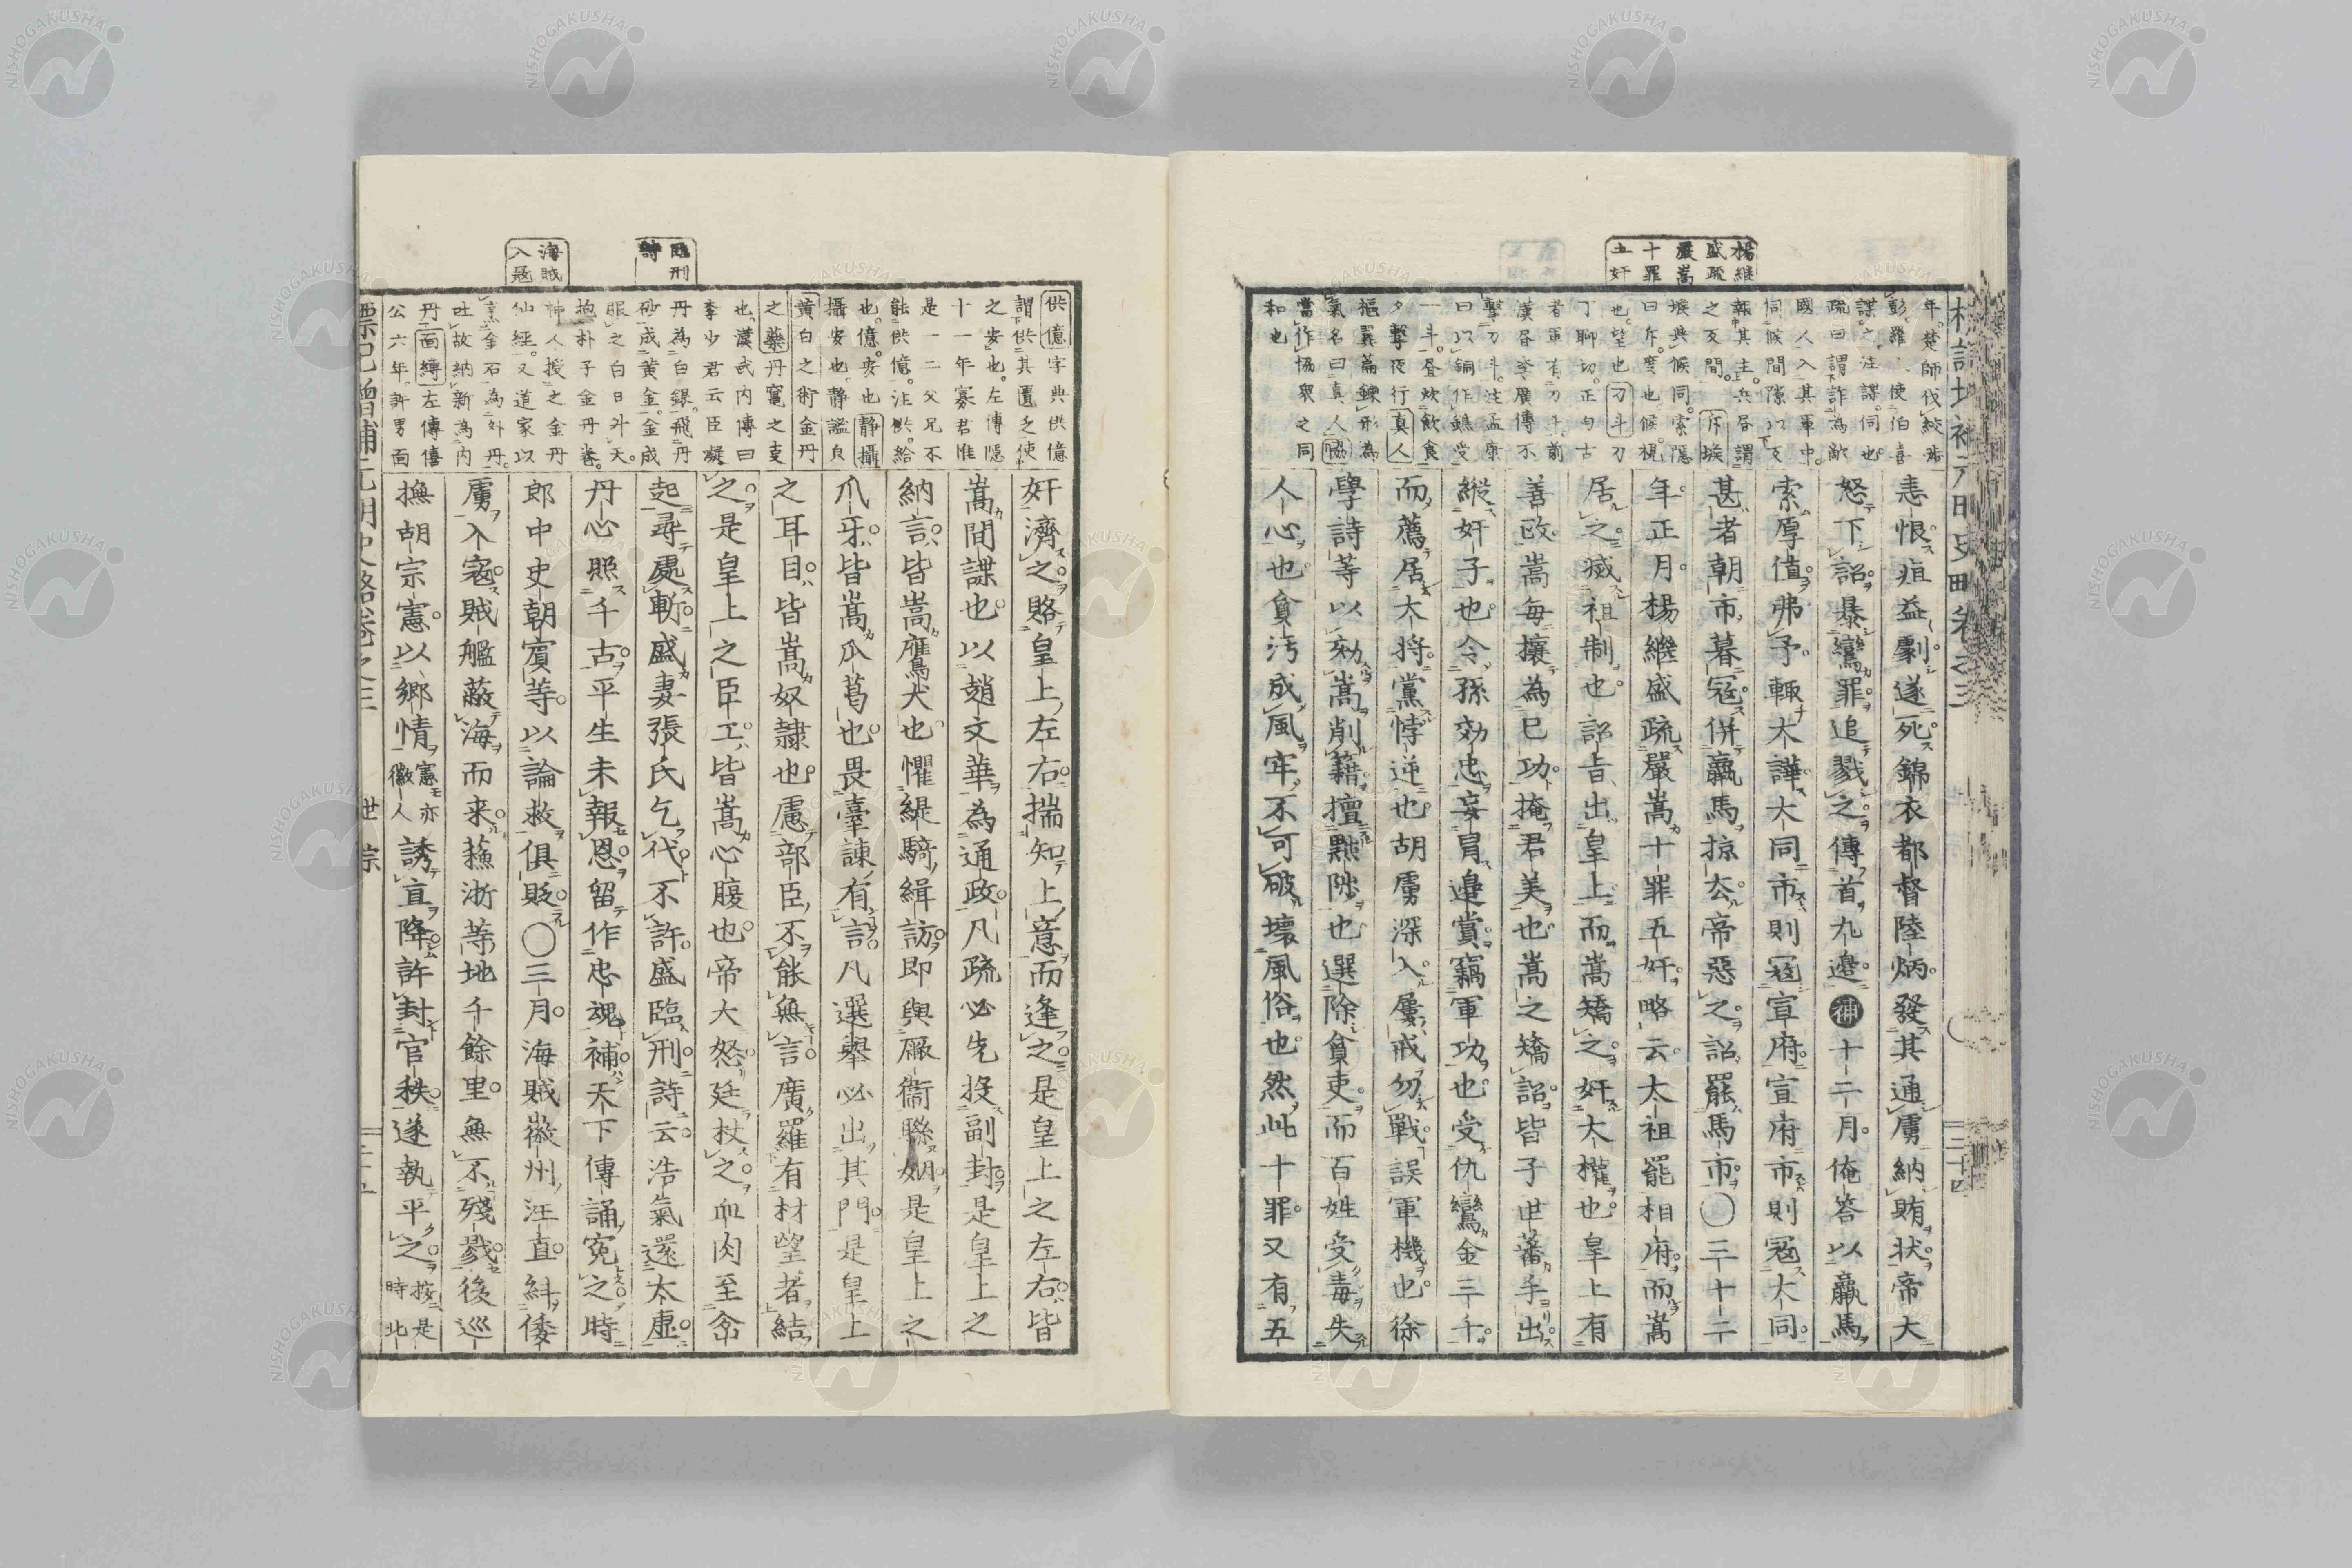 楊繼
盛疏
嚴嵩
十罪
五奸
年楚師伐絞
彭羅使伯嘉
諜之注諜伺也
疏曰謂詐為敵
國人入其軍中
伺候間隙以反
報其主兵居謂
之反間斥堠
堠與候同索隱
曰斥度也候視
也望也刁斗刁
丁聊切正句古
者軍有刁斗前
漢昏李廣傳不
擊刀斗注孟康
曰以銅作鐎受
一斗昼炊飲食
夕擊夜行真人
氣名曰真人
當作協衆之同
和也
恚恨疽益劇遂死錦衣都督陸炳發其通虜納賄狀帝大
怒下詔暴鸞罪追戮之傳首九邊補十二月俺答以羸馬
索厚值弗予輒大譁大同市則寇宣府宣府市則寇大同
甚者朝市暮寇併羸馬掠去帝惡之詔罷馬市〇三十二
年正月楊繼盛疏嚴嵩十罪五奸略云太祖罷相府而嵩
居之壞祖制也詔旨出皇上而嵩矯之奸大權也皇上有
善政嵩每攘為已功掩君美也嵩之矯詔皆子世蕃手出
縱奸子也令孫効忠妄冒邊賞竊軍功也受仇鸞金三千
而薦居大将黨悖逆也胡虜深入屢戒勿戰誤軍機也徐
學詩等以劾嵩削籍擅黜陟也選除貪吏而百姓受毒失
人心也貪污成風牢不可破壞風俗也然此十罪又有五
臨刑
詩
海賊
入寇
供億字典供億
謂供其匱乏使
之安也左傳隱
十一年寡君惟
是一二父兄不
能供億注供給
也億安也靜攝
攝安也靜謐良
黄白之術金丹
之藥丹竃之支
也漢武内傳曰
李少君云臣凝
丹為白銀飛丹
砂成黄金金成
服之白日外天
抱朴子金丹
神人授之金丹
仙經又道家以
烹金石為外丹
吐故納新為内
丹面縛左傳僖
公六年許男面
奸濟之賂皇上左右揣知上意而逢之是皇上之左右皆
嵩間諜也以趙文華為通政凡疏必先投副封是皇上之
納言皆嵩鷹犬也懼緹騎緝訪即與厰衞聯姻是皇上之
爪牙皆嵩瓜葛也畏臺諫有言凡選舉必出其門是皇上
之耳目皆嵩奴隷也慮部臣不能無言廣羅有材望者結
之是皇上之臣工皆嵩心腹也帝大怒廷杖之血肉至
起尋處斬盛妻張氏乞代不許盛臨刑詩云浩氣還太虛
丹心照千古平生未報恩留作忠魂補天下傳誦寃之時
郎中史朝賓等以論救俱貶〇三月海賊徽州汪直糾倭
虜入寇賊艦蔽海而来蘓浙等地千餘里無不殘戮後巡
撫胡宗憲以鄉情憲亦徽人誘直降許封官秩遂執平之按是時北